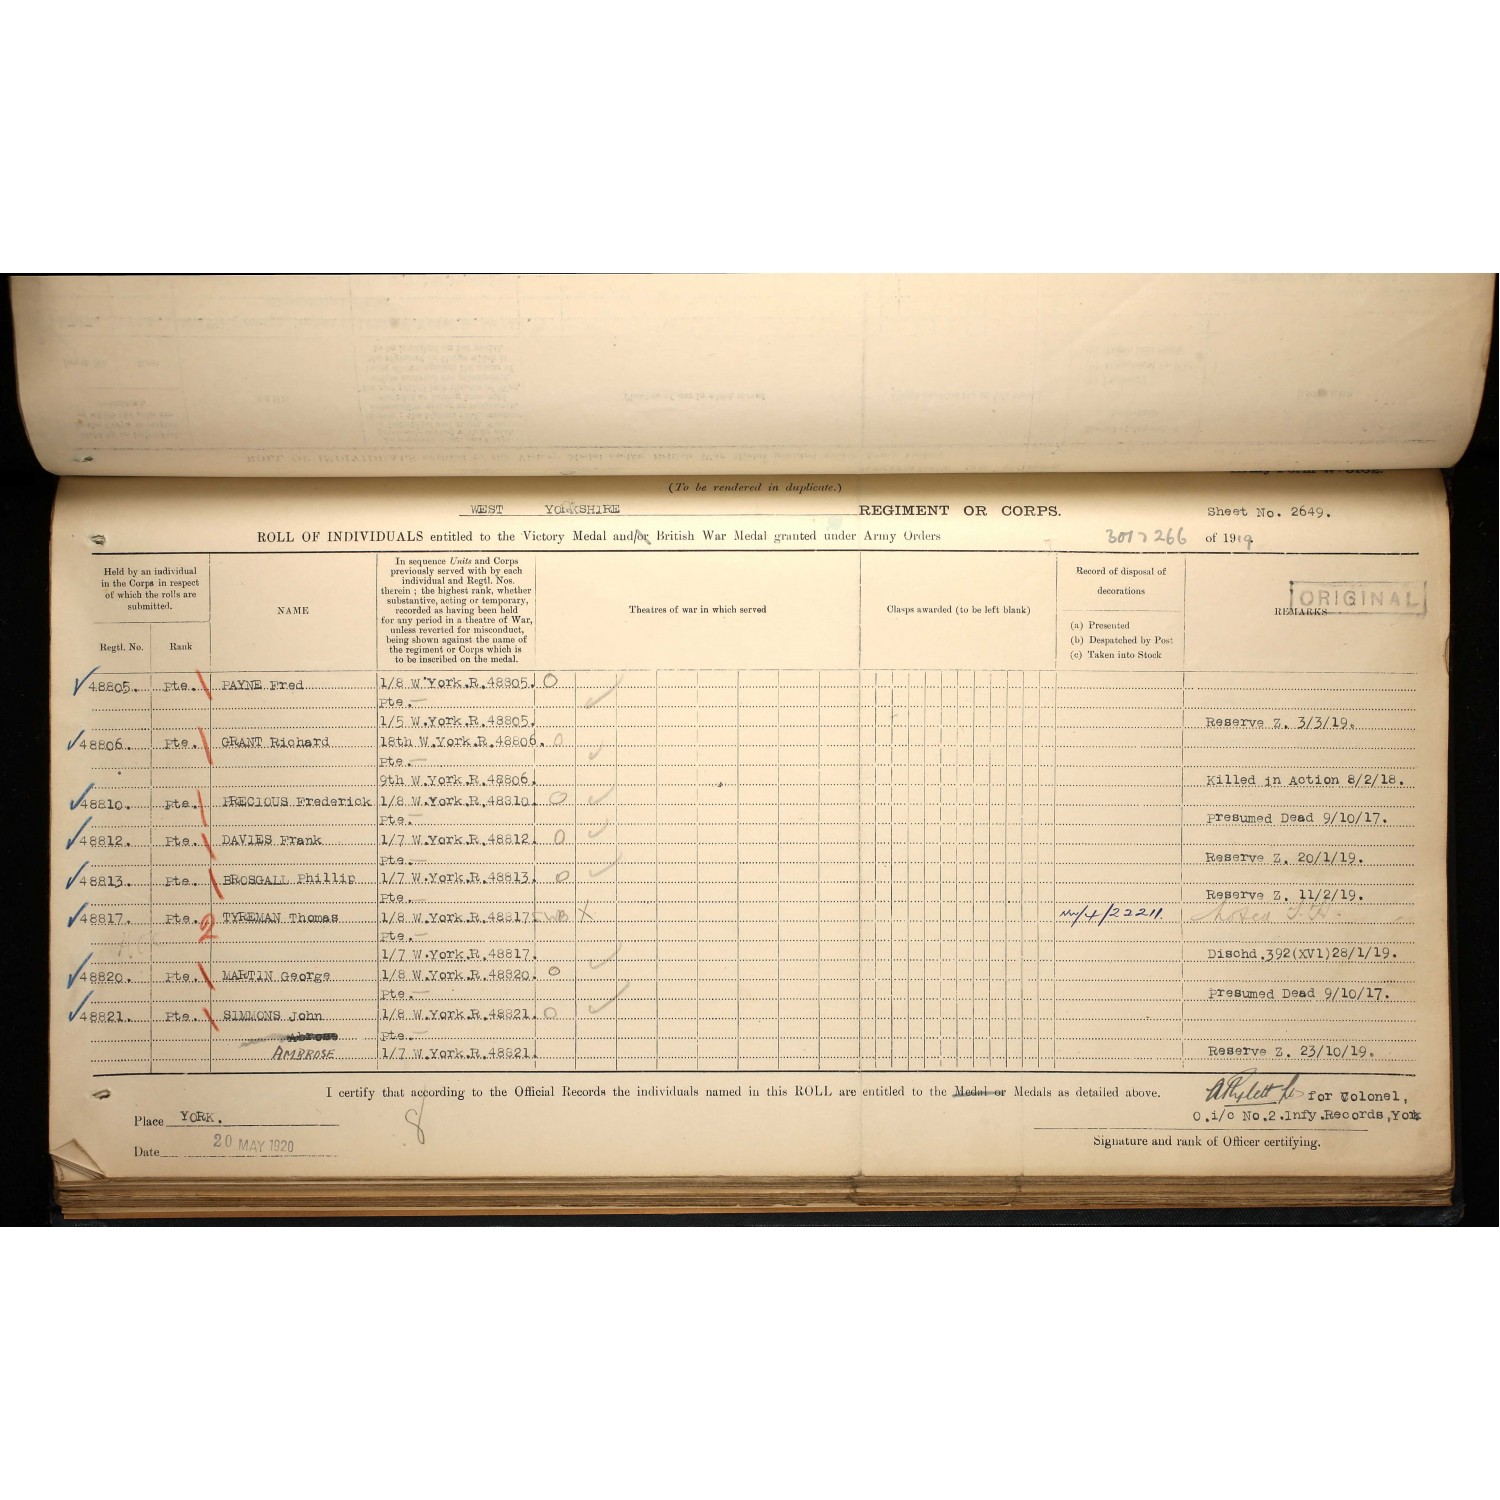 (To be rendered in duplicate.)
WEST YORKSHIRE REGIMENT OR CORPS. Sheet No. 2649.
ROLL OF INDIVIDUALS entitled to the Victory Medal and/or British War Medal granted under Army Orders 301 266 of 1919
Held by an individual
in the Corps in respect
of which the rolls are
submitted.
Regtl. No.
Rank
NAME
In sequence Units and Corps
previously served with by each
individual and Regtl. Nos.
therein ; the highest rank, whether
substantive, acting or temporary,
recorded as having been held
for any period in a theatre of War,
unless reverted for misconduct,
being shown against the name of
the regiment or Corps which is
to be inscribed on the medal.
Theatres of war in which served
Clasps awarded (to be left blank)
Record of disposal of
decorations
(a) Presented
(b) Despatched by Post
(c) Taken into Stock
REMARKS
ORIGINAL
48805. Pte. PAYNE Fred 1/8 W.York.R.48805. O
Pte.—
1/5 W.York.R.48805. Reserve Z. 3/3/19.
48806. Pte. GRANT Richard 18th W.York.R.48806. O
Pte.—
9th W.York.R.48806. Killed in Action 8/2/18.
48810. Pte. PRECIOUS Frederick 1/8 W.York.R.48810. O
Pte.— Presumed Dead 9/10/17.
48812. Pte. DAVIES Frank 1/7 W.York.R.48812. O
Pte.— Reserve Z. 20/1/19.
48813. Pte. BROSGALL Phillip 1/7 W.York.R.48813. O
Pte.— Reserve Z. 11/2/19.
48817. Pte. 2 TYREMAN Thomas 1/8 W.York.R.48817. X /4/22211.
Pte.—
1/7 W.York.R.48817. Dischd.392(XVI)28/1/19.
48820. Pte. MARTIN George 1/8 W.York.R.48820. O
Pte.— Presumed Dead 9/10/17.
48821. Pte. SIMMONS John 1/8 W.York.R.48821. O
Abrose Pte.—
AMBROSE 1/7 W.York.R.48821. Reserve Z. 23/10/19.
I certify that according to the Official Records the individuals named in this ROLL are entitled to the Medal or Medals as detailed above.
for Colonel,
O.i/c No.2.Infy.Records,York
Signature and rank of Officer certifying.
Place YORK.
Date 20 MAY 1920
8